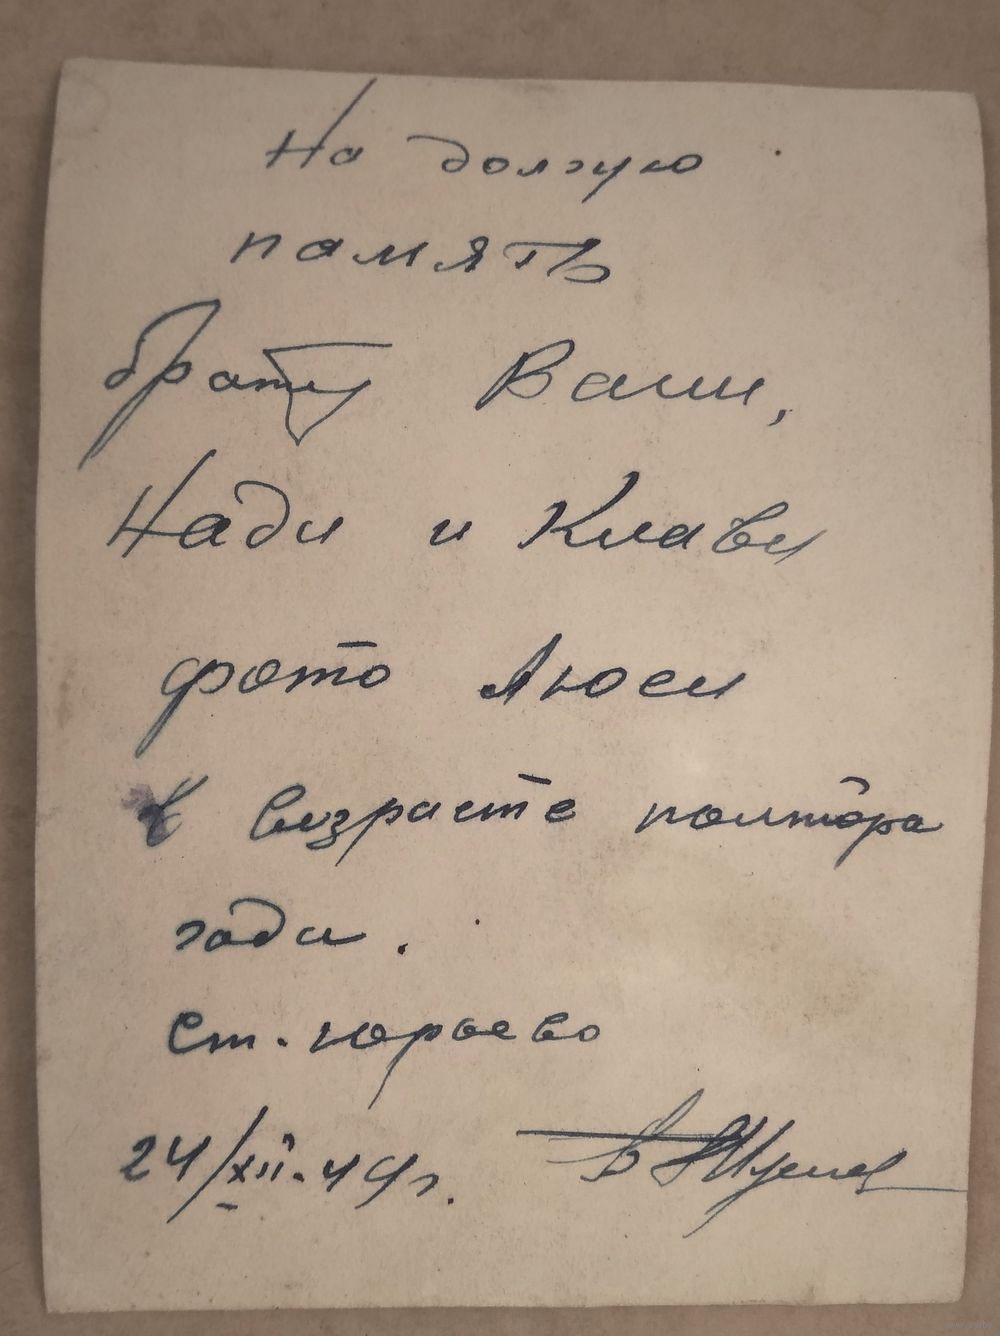 На долгую
память
брату Вани,
Нади и Клави
фото Люси
в возрасте полтора
года.
ст. Юрьево
24/XII-49г.